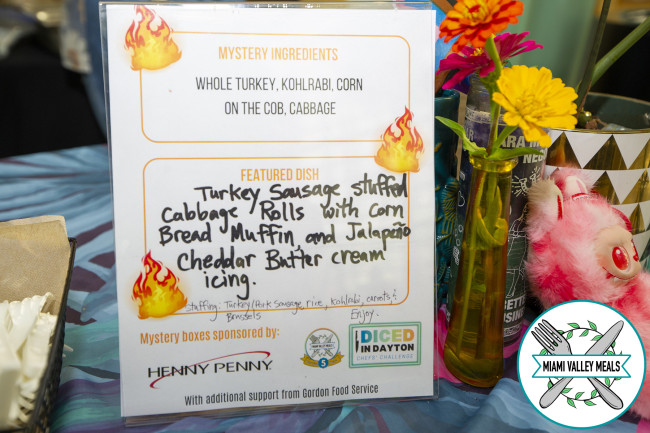 MYSTERY INGREDIENTS
WHOLE TURKEY, KOHLRABI, CORN
ON THE COB, CABBAGE
FEATURED DISH
Turkey Sausage stuffed
Cabbage Rolls with Corn
Bread Muffin and Jalapeño
Cheddar Butter cream
icing.
stuffing: Turkey/Pork Sausage, rice, kohlrabi, carrots, &
Brussels
Enjoy.
Mystery boxes sponsored by:
HENNY PENNY
5
DICED
IN DAYTON
CHEFS' CHALLENGE
With additional support from Gordon Food Service
MIAMI VALLEY MEALS